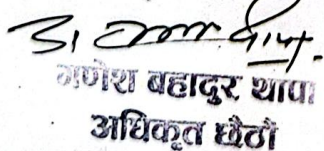 गणेश बहादुर थापा
अधिकृत छैठौ